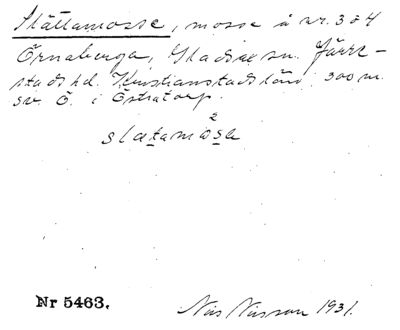 Slättamosse, mosse å nr. 3 o 4
Örnaberga, Gladsax sn. Järre-
stads hd. Kristianstads län, 300 m.
sv. Ö. i Östratorp.
slatamosa
Nr 5463.
Nils Nilsson 1931.